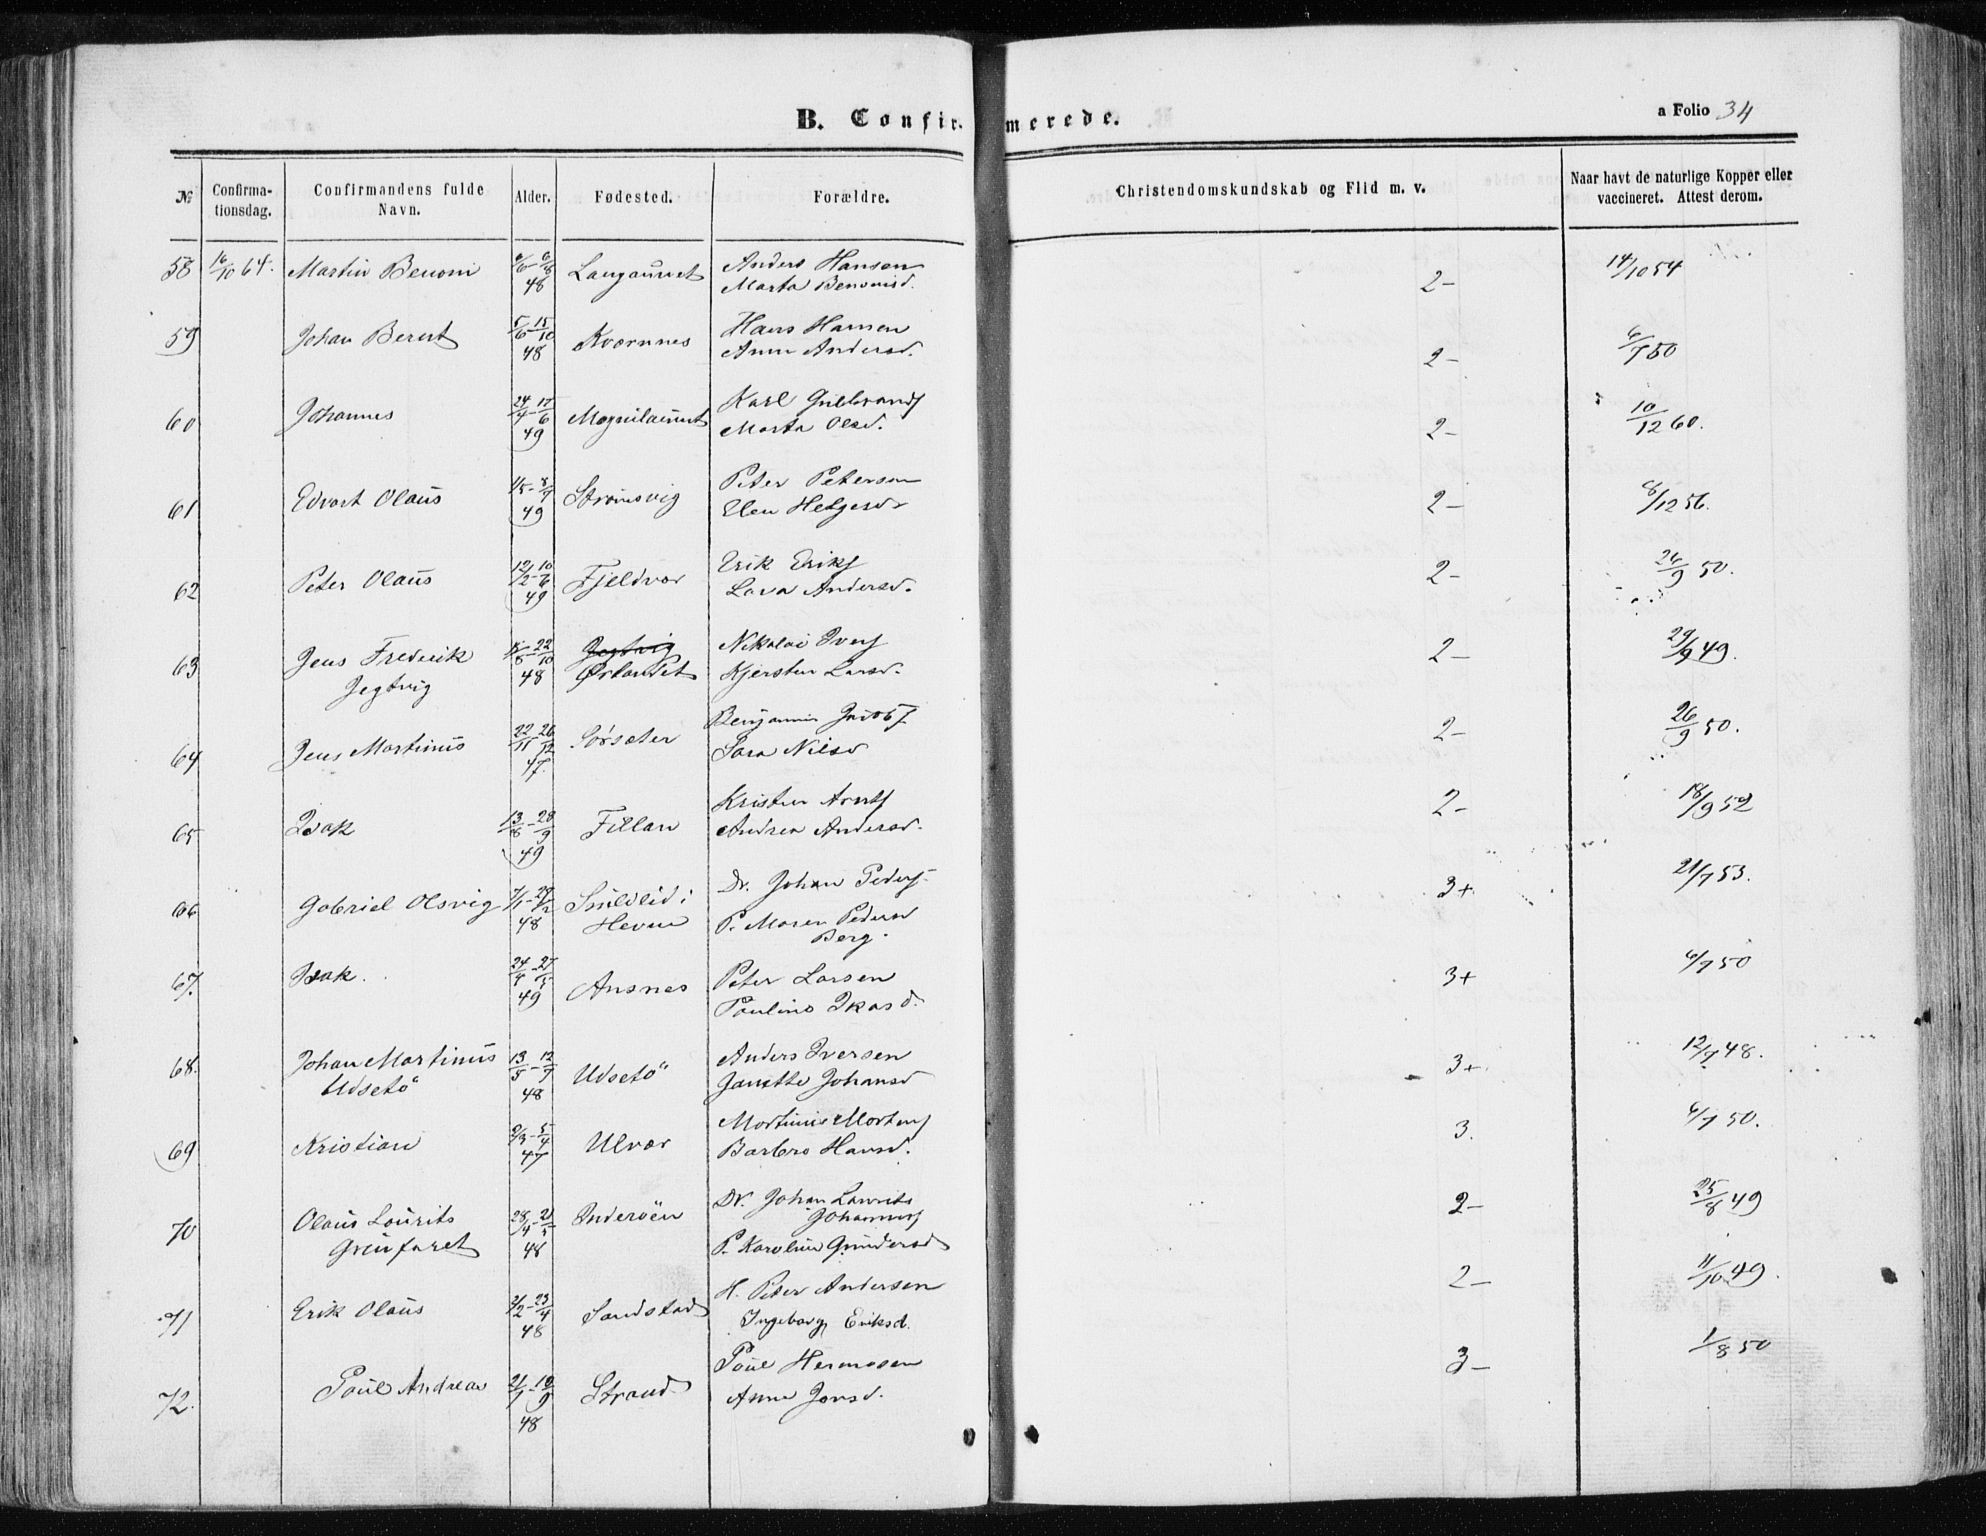 B. Confirmerede.
a Folio 34
№ Confirmationsdag. Confirmandens fulde Navn. Alder. Fødested. Forældre. Christendomskundskab og Flid m. v. Naar havt de naturlige Kopper eller vaccineret. Attest derom.
58 16/10 64. Martin Benoni 48 Langaunet Anders Hansen 2- 14/10 54
Marta Benonisd.
59 Johan Bernt 5/6-15/10 48 Kværnnes Hans Hansen 2- 6/7 50
Anne Andersd.
60 Johannes 24/4-17/6 49 Karl Gulbrands 2- 10/12 60.
Marta Olsd.
61 Edvart Olaus 1/5-8/7 49 Strømsvig Peter Petersen 2- 8/12 56.
Elen Helgesd
62 Peter Olaus 12/2-10/6 49 Fjeldvær Erik Eriks 2- 26/9 50.
Lava Andersd.
63 Jens Frederik 22/10 48 Jegtvig Nikolai Ivers 2- 29/9 49.
Jegtvig Ørlandet Kjersten Larsd.
64 Jens Martinus 22/11-26/12 47. Sørsæter Benjamin Jacobs 2- 26/9 50.
Sara Nilsd
65 Isak 13/8-28/9 49 Fillan Kristen Arnts 2- 18/9 52
Andrea Andersd.
66 Gabriel Olsvig 7/1 48 i Hevne Dr. Johan Peders. 3+ 21/7 53.
P. Maren Pedersd
Berg.
67. Isak. 24/4-27/5 49 Ansnes Peter Larsen 3+ 6/7 50
68. Johan Martinus 13/5-12/9 48 Udsetö Anders Iversen 3+. 12/9 48.
Udsetö Janette Johansd
69 Kristian 2/3-5/4 47 Ulvær Martinus Mortens 3. 6/7 50.
Barbro Hansd.
70 Olaus Lourits 28/4 48 Inderöen Dr. Johan Laurits 2- 25/8 49
Johannes
P. Karoline Gundersd
71 Erik Olaus 2/2-23/4 48 Sandstad H. Peter Andersen 2- 11/10 49.
Ingeborg Eriksd.
72. Poul Andreas 21/7-10/9 48 Strand Poul Hermansen 3- 1/8 50
Anne Jonsd.